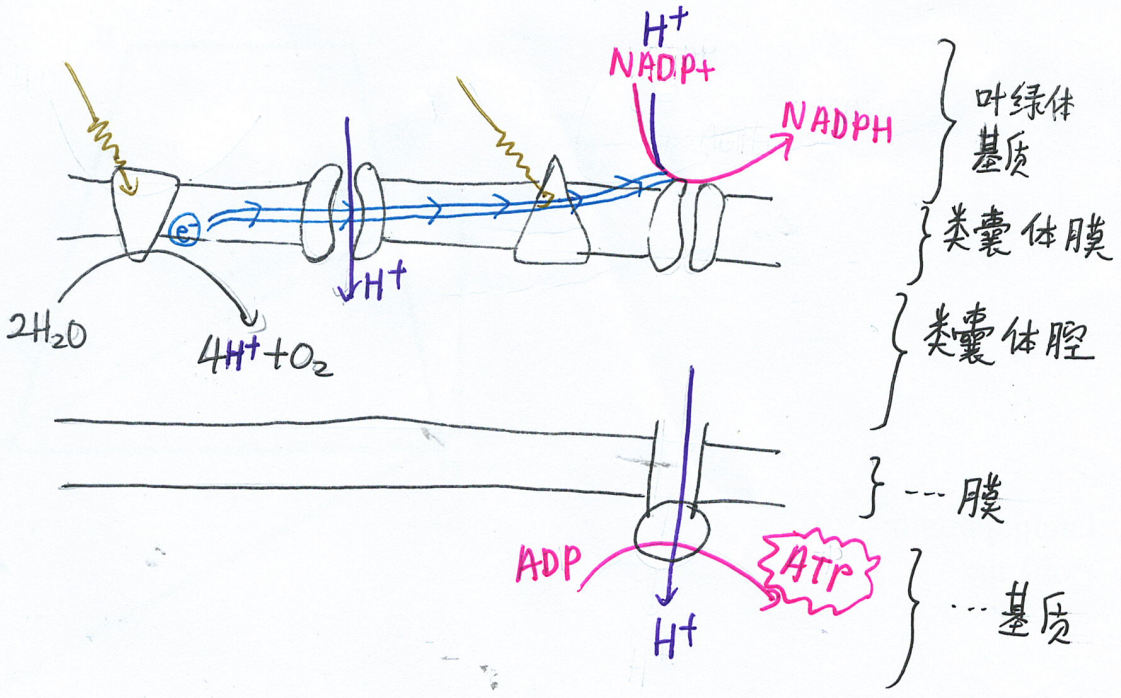 H+
NADP+
NADPH
叶绿体
基质
类囊体膜
e-
H+
2H₂O
4H+ +O₂
类囊体腔
…膜
ADP
ATP
H+
…基质